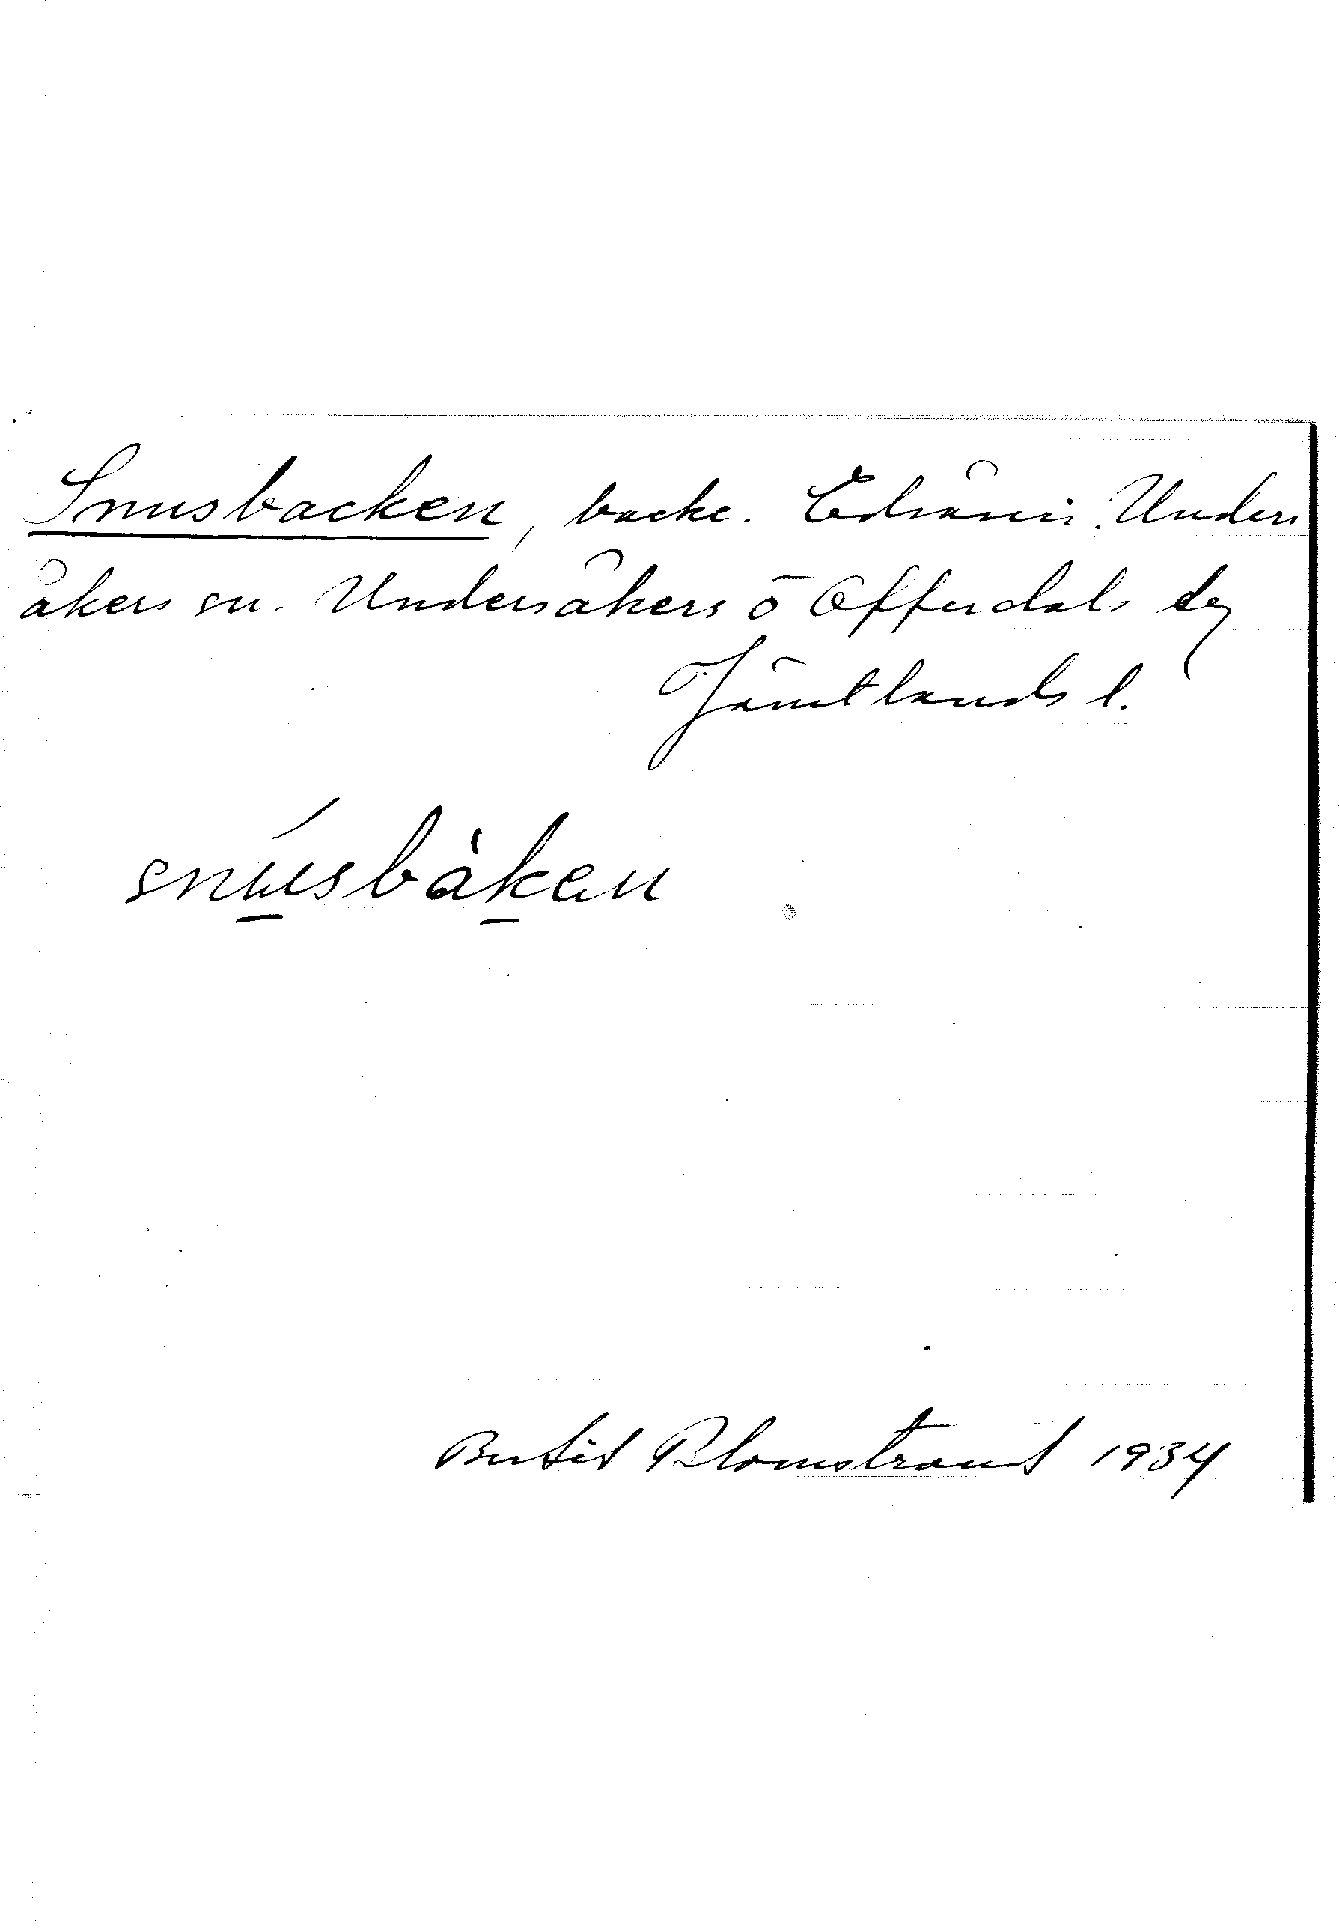 Snusbacken, backe. Edsåsen, Unders
åkers sn. Undersåkers o Offerdals tg
Jämtlands l.
snúsbàken
Bertil Blomstrand 1934